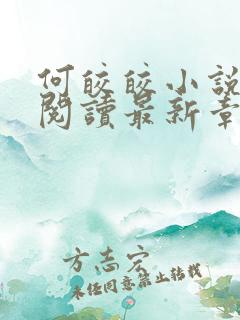 何皎皎小說
閱讀最新章
方志宏
未经同意禁止转载